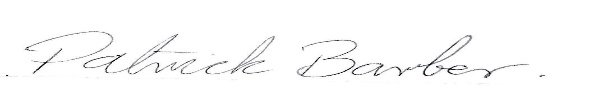 Patrick Barber.